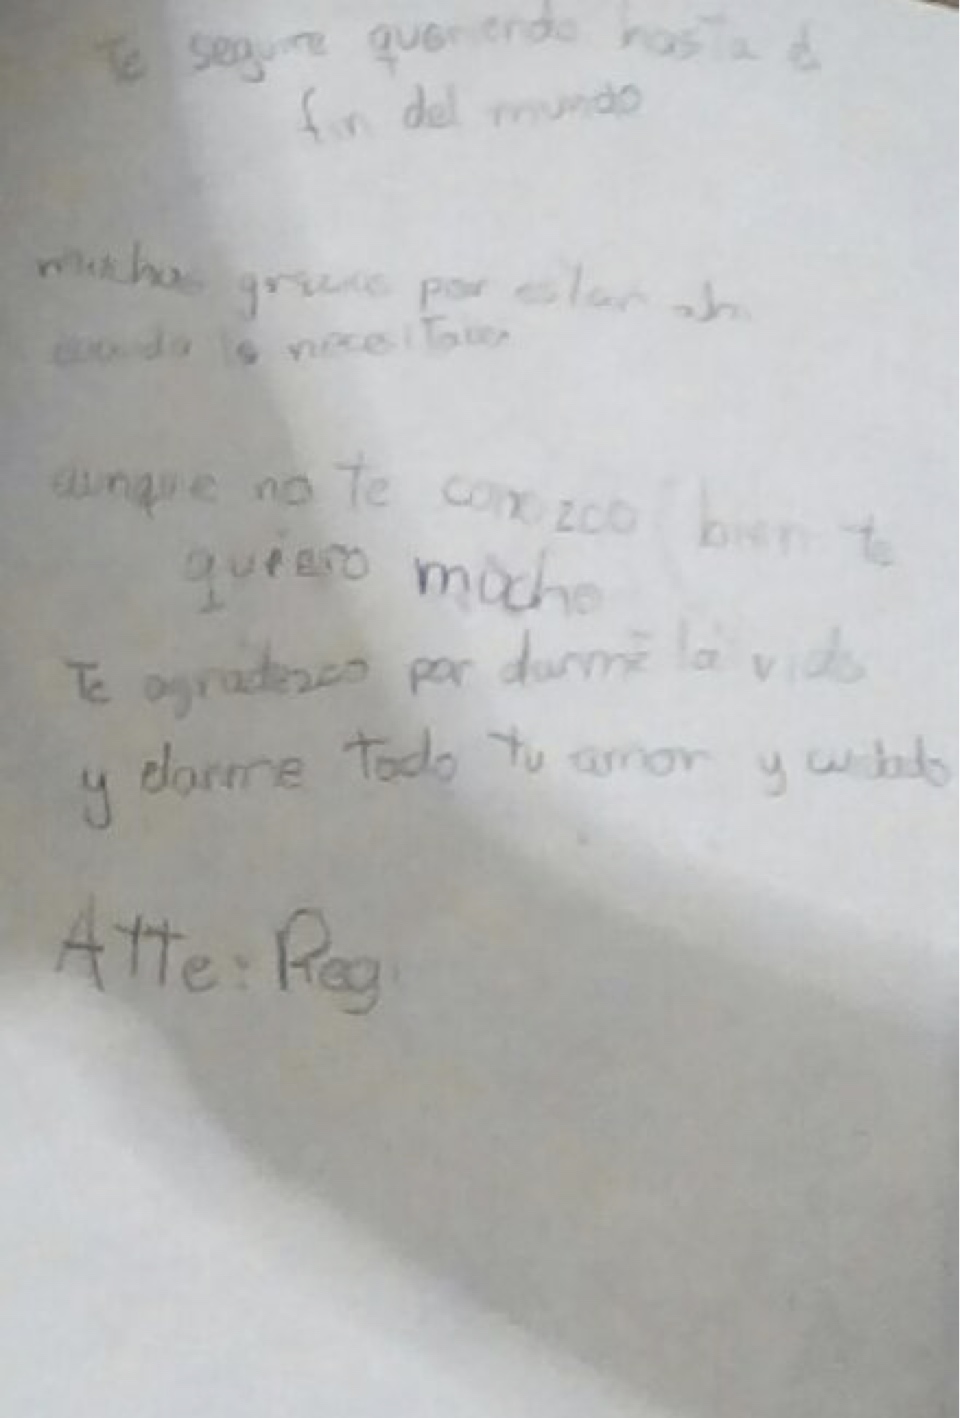 Te seguire queriendo hasta el
fin del mundo
muchas gracias por estar ahi
cuando lo necesitaba
aunque no te conozco bien te
quiero mucho
Te agradezco por darme la vida
y darme todo tu amor y cuidado
Atte: Reg.